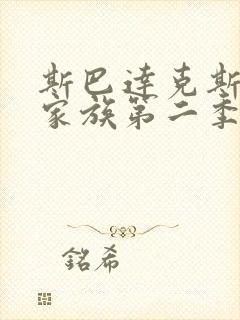 斯巴達克斯
家族第二季
銘希